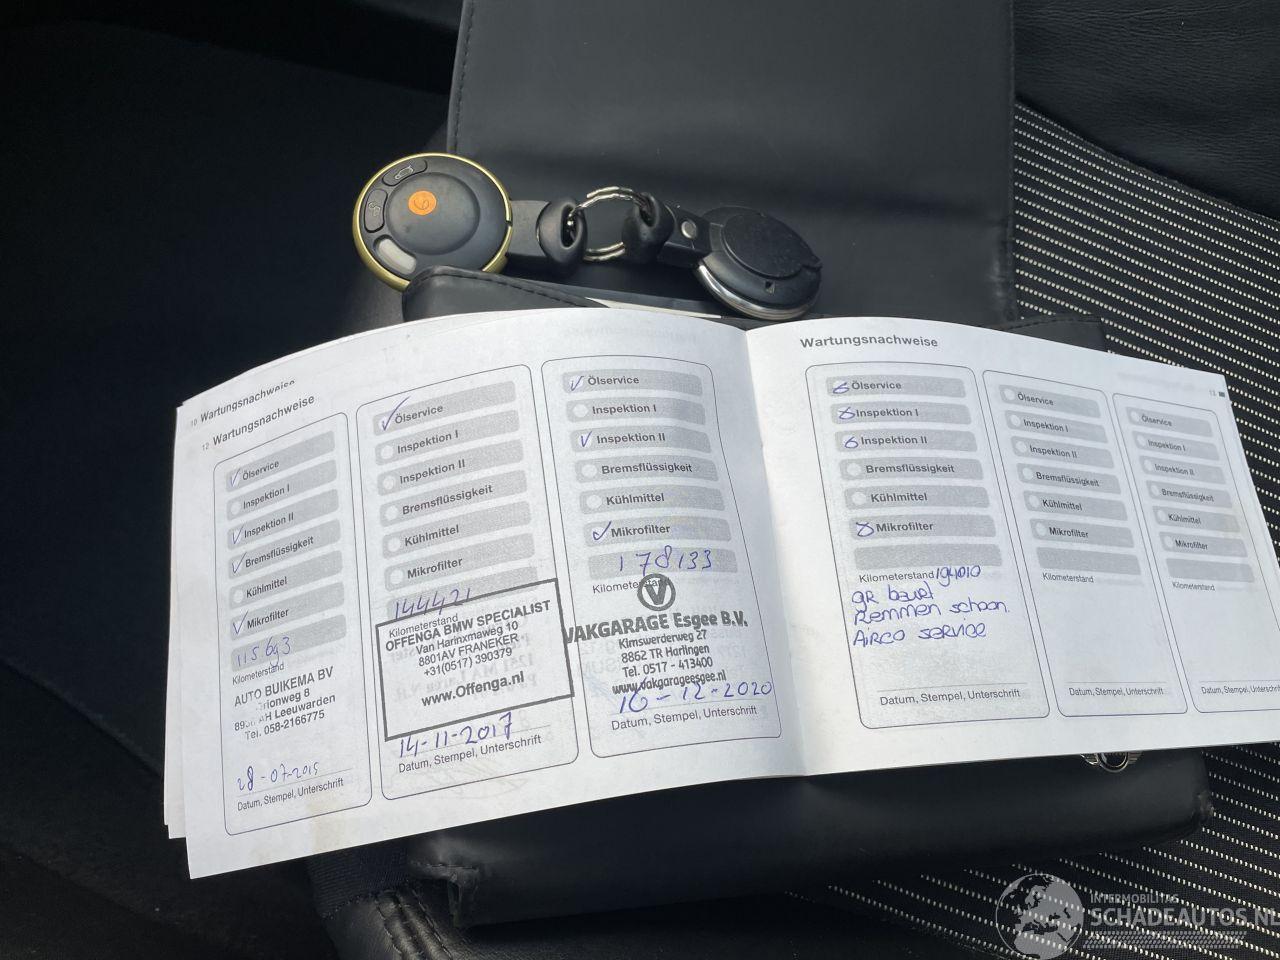 10 Wartungsnachweise
12 Wartungsnachweise
Ölservice
Inspektion I
Inspektion II
Bremsflüssigkeit
Kühlmittel
Mikrofilter
115693
Kilometerstand
AUTO BUIKEMA BV
Orionweg 8
AH Leeuwarden
Tel. 058-2166775
28-07-2015
Datum, Stempel, Unterschrift
Ölservice
Inspektion I
Inspektion II
Bremsflüssigkeit
Kühlmittel
Mikrofilter
144421
Kilometerstand
OFFENGA BMW SPECIALIST
Van Harinxmaweg 10
8801AV FRANEKER
+31(0517) 390379
www.Offenga.nl
14-11-2017
Datum, Stempel, Unterschrift
Ölservice
Inspektion I
Inspektion II
Bremsflüssigkeit
Kühlmittel
Mikrofilter
178133
Kilometerstand
V
VAKGARAGE Esgee B.V.
Kimswerderweg 27
8862 TR Harlingen
Tel. 0517 - 413400
www.vakgarageesgee.nl
16-12-2020
Datum, Stempel, Unterschrift
Wartungsnachweise
13
Ölservice
Inspektion I
Inspektion II
Bremsflüssigkeit
Kühlmittel
Mikrofilter
Kilometerstand 194010
Remmen schoon.
Airco service
Datum, Stempel, Unterschrift
Ölservice
Inspektion I
Inspektion II
Bremsflüssigkeit
Kühlmittel
Mikrofilter
Kilometerstand
Datum, Stempel, Unterschrift
Ölservice
Inspektion I
Inspektion II
Bremsflüssigkeit
Kühlmittel
Mikrofilter
Kilometerstand
Datum, Stempel, Unterschrift
6
INTERMOBILITAS
SCHADEAUTOS.NL